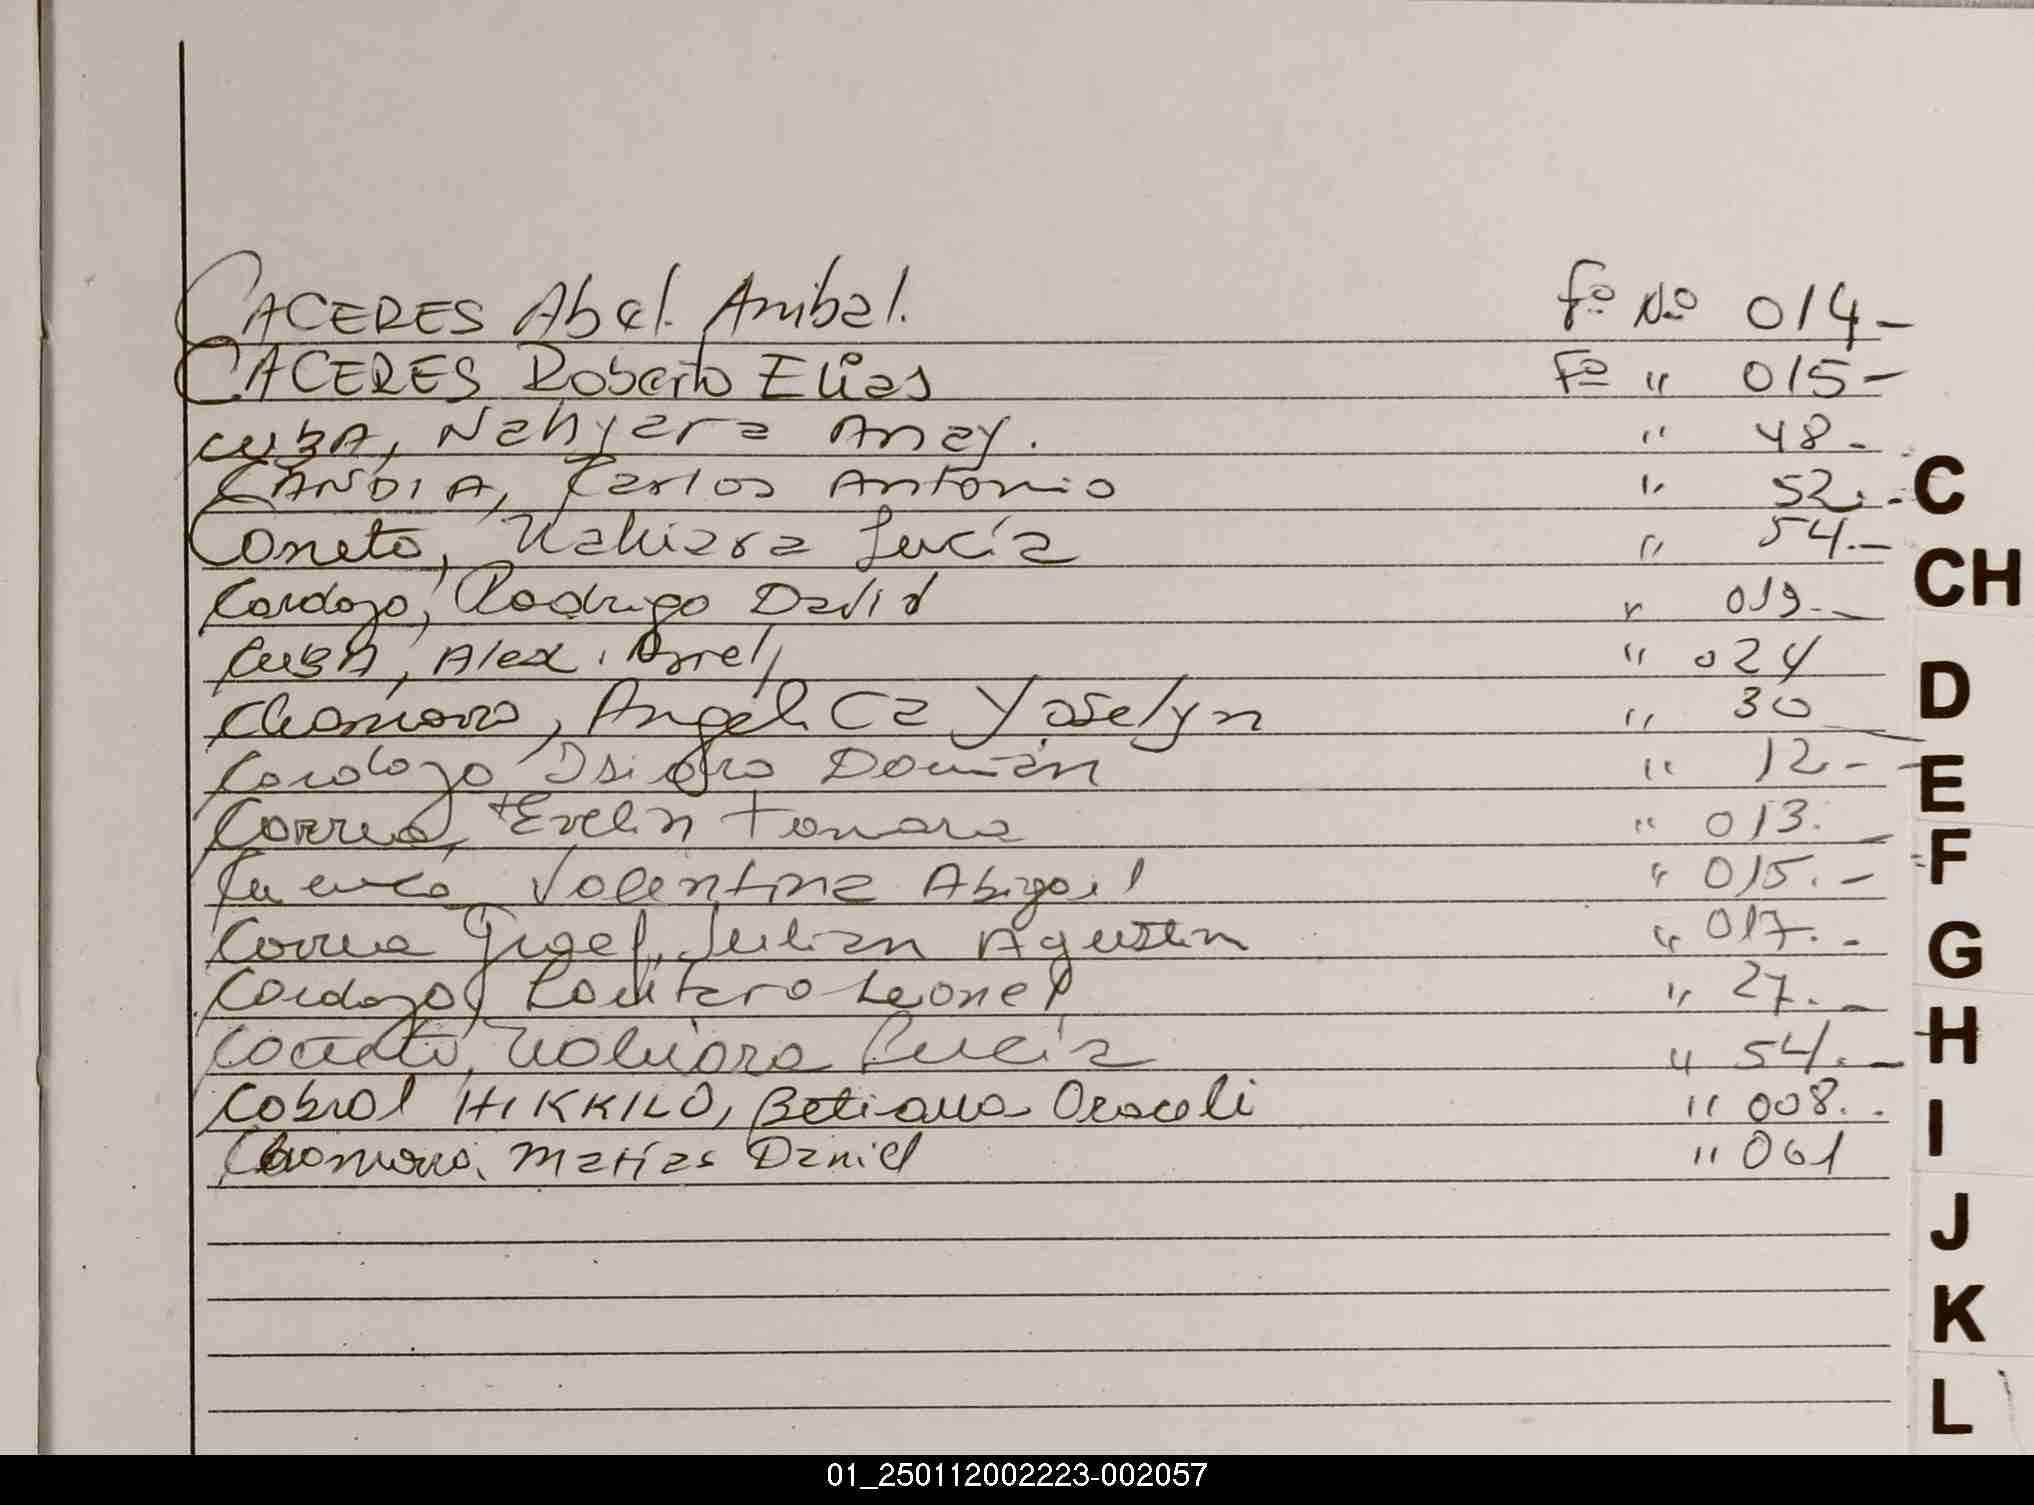 CACERES Abel. Anibal. fº Nº 014-
CACERES Roberto Elias Fº " 015-
CUBA, Nahyara Anay. " 48-
CANDIA, Carlos Antonio " 52.-
Coneto, Nahiara Lucía " 54.-
Cardozo, Rodrigo David " 019.-
CUBA, Alex. " 024
Chamorro, Angelica Yoselyn " 30
Cardozo Isidro Damián " 12-
Correa, Evelin Tamara " 013.
Cuenca Valentina Abigail " 015.-
Correa Graef, Julian Agustin " 017.-
Cardozo, Lautaro Leonel " 27.-
Coneto, Nahiara Lucía " 54.-
Cabral HIKKILO, Betiana Oraceli " 008..
Chamorro, Matías Daniel " 061
C
CH
D
E
F
G
H
I
J
K
L
01_250112002223-002057